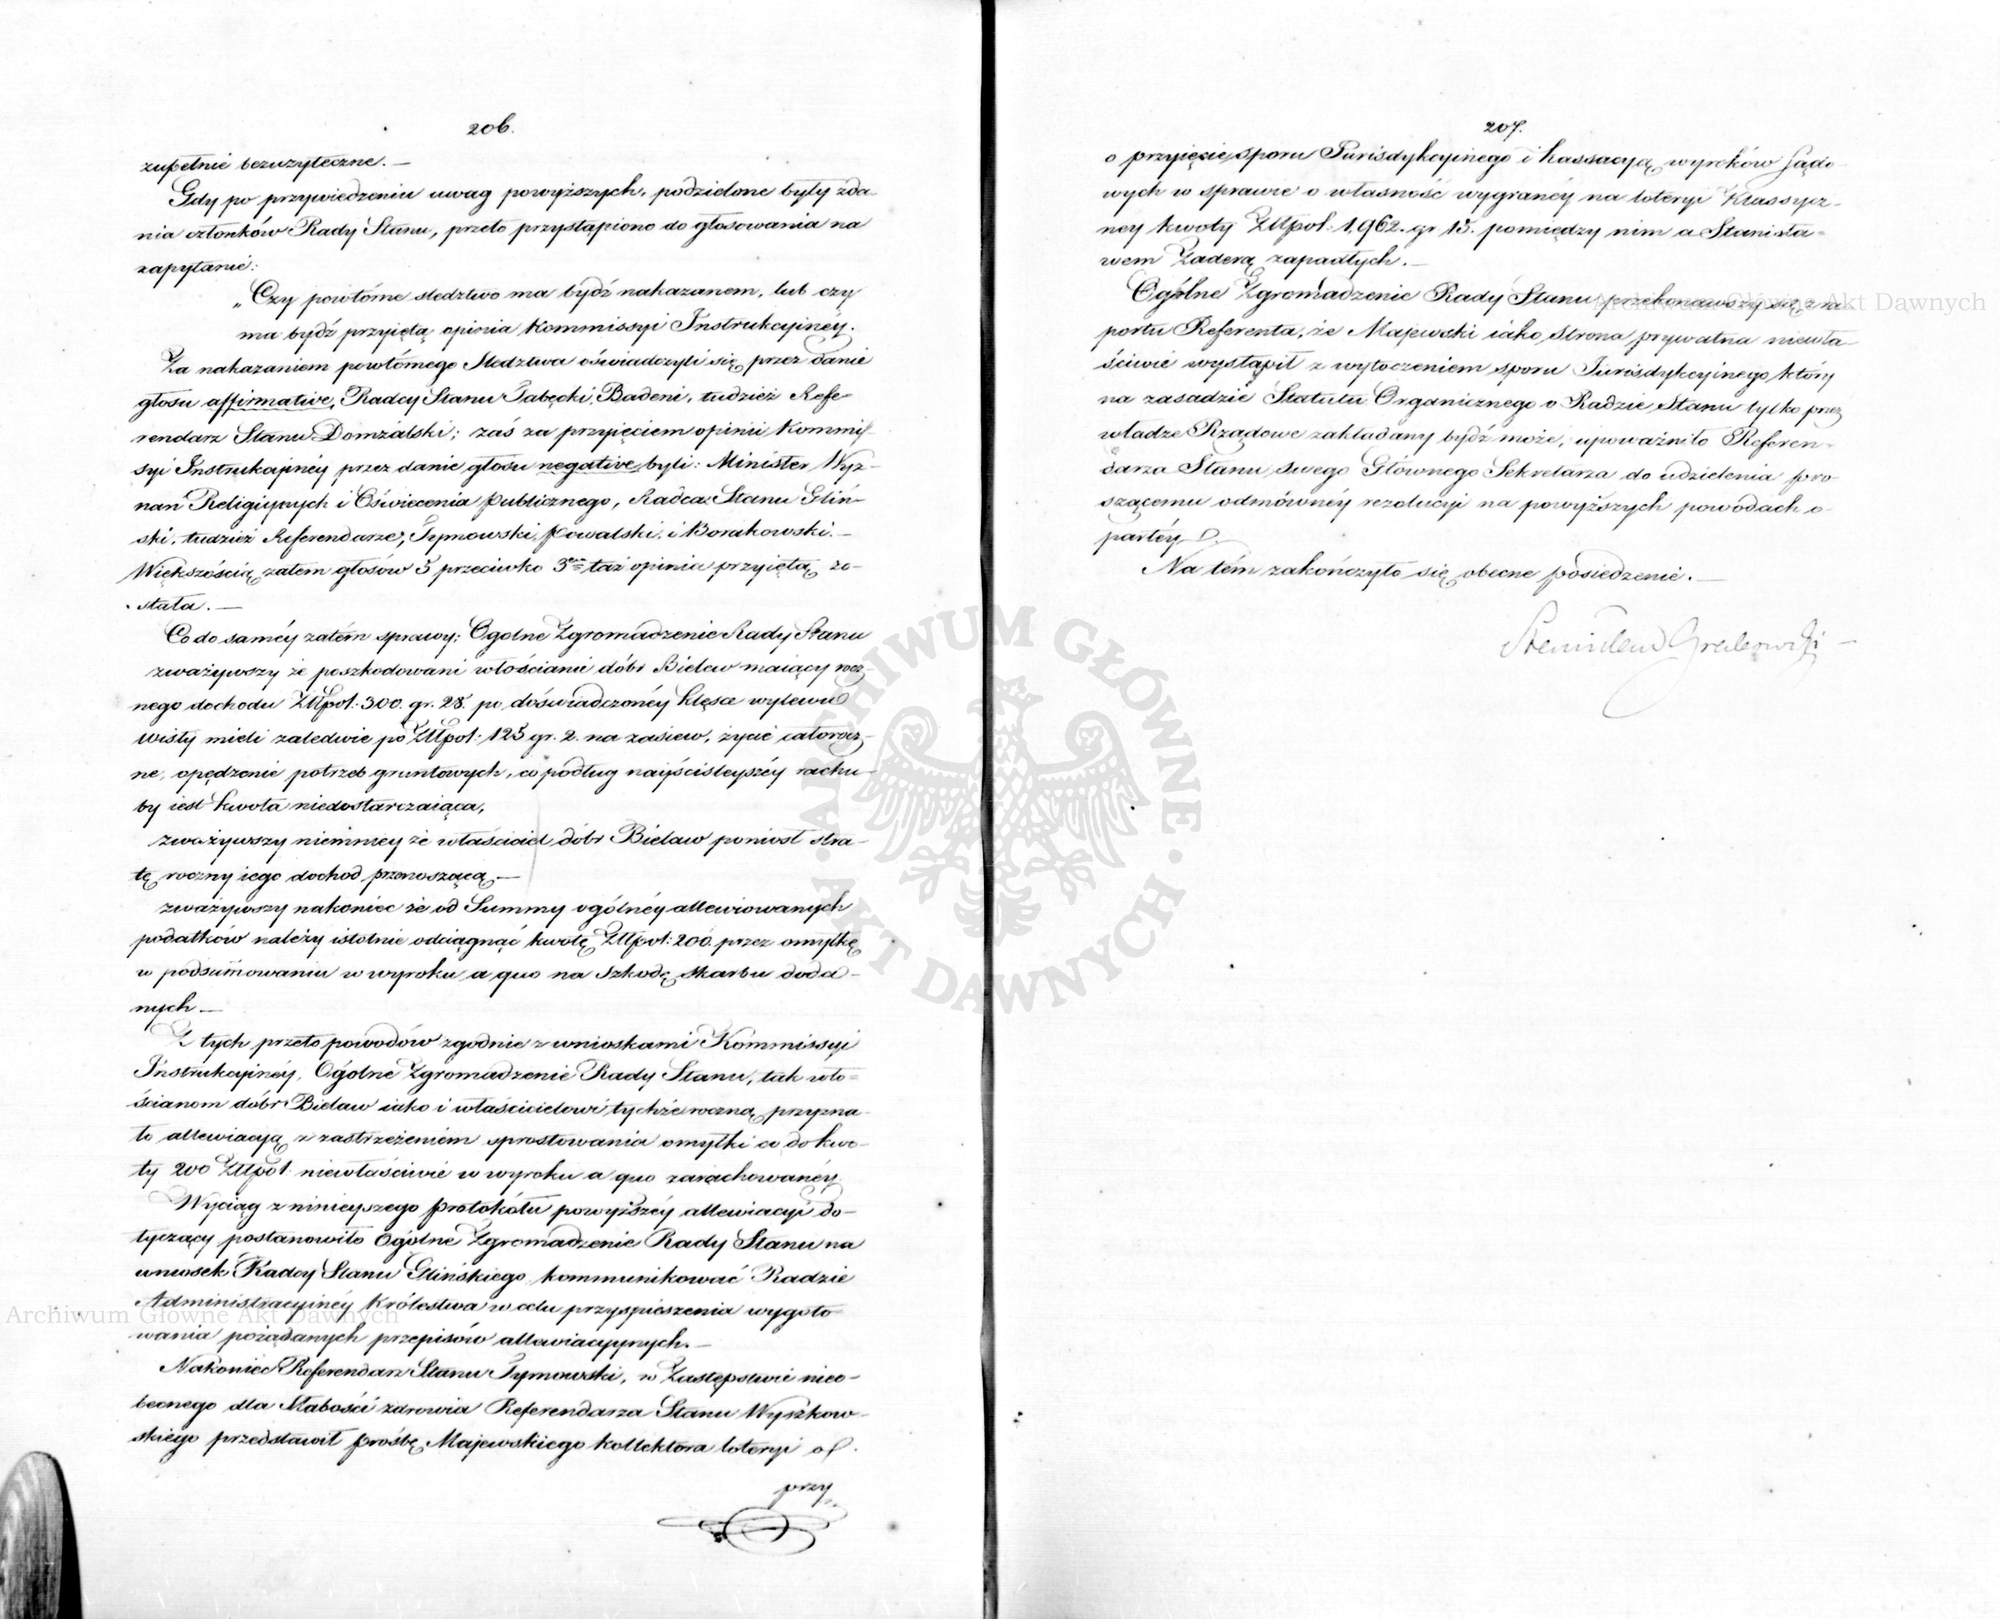 206.
zupełnie bezużyteczne. —
Gdy po przywiedzeniu uwag powyższych, podzielone były zda-
nia członków Rady Stanu, przeto przystąpiono do głosowania na
zapytanie:
„Czy powtórne sledztwo ma bydź nakazanem, lub czy
ma bydź przyiętą opinia Kommissyi Instrukcyinéy.
Za nakazaniem powtórnego Sledztwa oświadczyli się przez danie
głosu affirmative, Radcy Stanu Tabęcki, Badeni, tudzież Refe-
rendarz Stanu Domżalski; zaś za przyięciem opinii Kommis-
syi Instrukcyinéy przez danie głosu negative byli: Minister Wyz-
nań Religiynych i Oświecenia publicznego, Radca Stanu Gliń-
ski, tudzież Referendarze, Tymowski, Kowalski, i Borakowski. —
Większością zatem głosów 5 przeciwko 3em taż opinia przyiętą zo-
stała. —
Co do saméy zatém sprawy; Ogolne Zgromadzenie Rady Stanu
zważywszy że poszkodowani włościanie dóbr Bielaw maiący rocz-
nego dochodu Złłpol: 300. gr. 28. po doświadczonéy klęsce wylewu
Wisły mieli zaledwie po Złłpol: 125 gr. 2. na zasiew, życie całorocz-
ne, opędzenie potrzeb gruntowych, co podług nayściśleyszéy rachu-
by iest kwota niedostarczaiąca,
zważywszy niemniey że właściciel dóbr Bielaw poniosł stra-
tę roczny iego dochod przenoszącą —
zważywszy nakoniec że od Summy ogólnéy allewiowanych
podatków należy istotnie odciągnąć kwotę Złłpol: 200. przez omyłkę
w podsumowaniu w wyroku a quo na Szkodę skarbu doda-
nych —
Z tych przeto powodów zgodnie z wnioskami Kommissyi
Instrukcyinéy, Ogólne Zgromadzenie Rady Stanu, tak wło-
ścianom dóbr Bielaw iako i właścicielowi tychże roczną przyzna-
ło allewiacyą z zastrzeżeniem sprostowania omyłki co do kwo-
ty 200 Złłpol. niewłaściwie w wyroku a quo zarachowanéy.
Wyciąg z ninieyszego protokółu powyższéy allewiacyi do-
tyczący postanowiło Ogólne Zgromadzenie Rady Stanu na
wniosek Radcy Stanu Glińskiego kommunikować Radzie
Administracyinéy Królestwa w celu przyspieszenia wygoto-
wania pożądanych przepisów allewiacyynych. —
Nakoniec Referendarz Stanu Tymowski, w Zastępstwie nieo-
becnego dla słabości zdrowia Referendarza Stanu Wyszkow-
skiego przedstawił prośbę Majewskiego kollektora loteryi o
przy
207.
o przyięcie sporu Jurisdykcyinego i kassacyą wyroków Sądo-
wych w sprawie o własność wygranéy na loteryi Klassycz-
néy kwoty Złłpol: 1,962. gr 15. pomiędzy nim a Stanisła-
wem Zaderą zapadłych. —
Ogólne Zgromadzenie Rady Stanu przekonawszy się z ra-
portu Referenta, że Majewski iako Strona prywatna niewła-
ściwie wystąpił z wytoczeniem sporu Jurisdykcyinego, który
na zasadzie Statutu Organicznego o Radzie Stanu tylko przez
władze Rządowe zakładany bydź może, upoważniło Referen-
darza Stanu swego Głównego Sekretarza do udzielenia pro-
szącemu odmównéy rezolucyi na powyższych powodach o-
partéy.
Na tém zakończyło się obecne posiedzenie. —
Archiwum Główne Akt Dawnych
Archiwum Główne Akt Dawnych
ARCHIWUM GŁÓWNE · AKT DAWNYCH ·